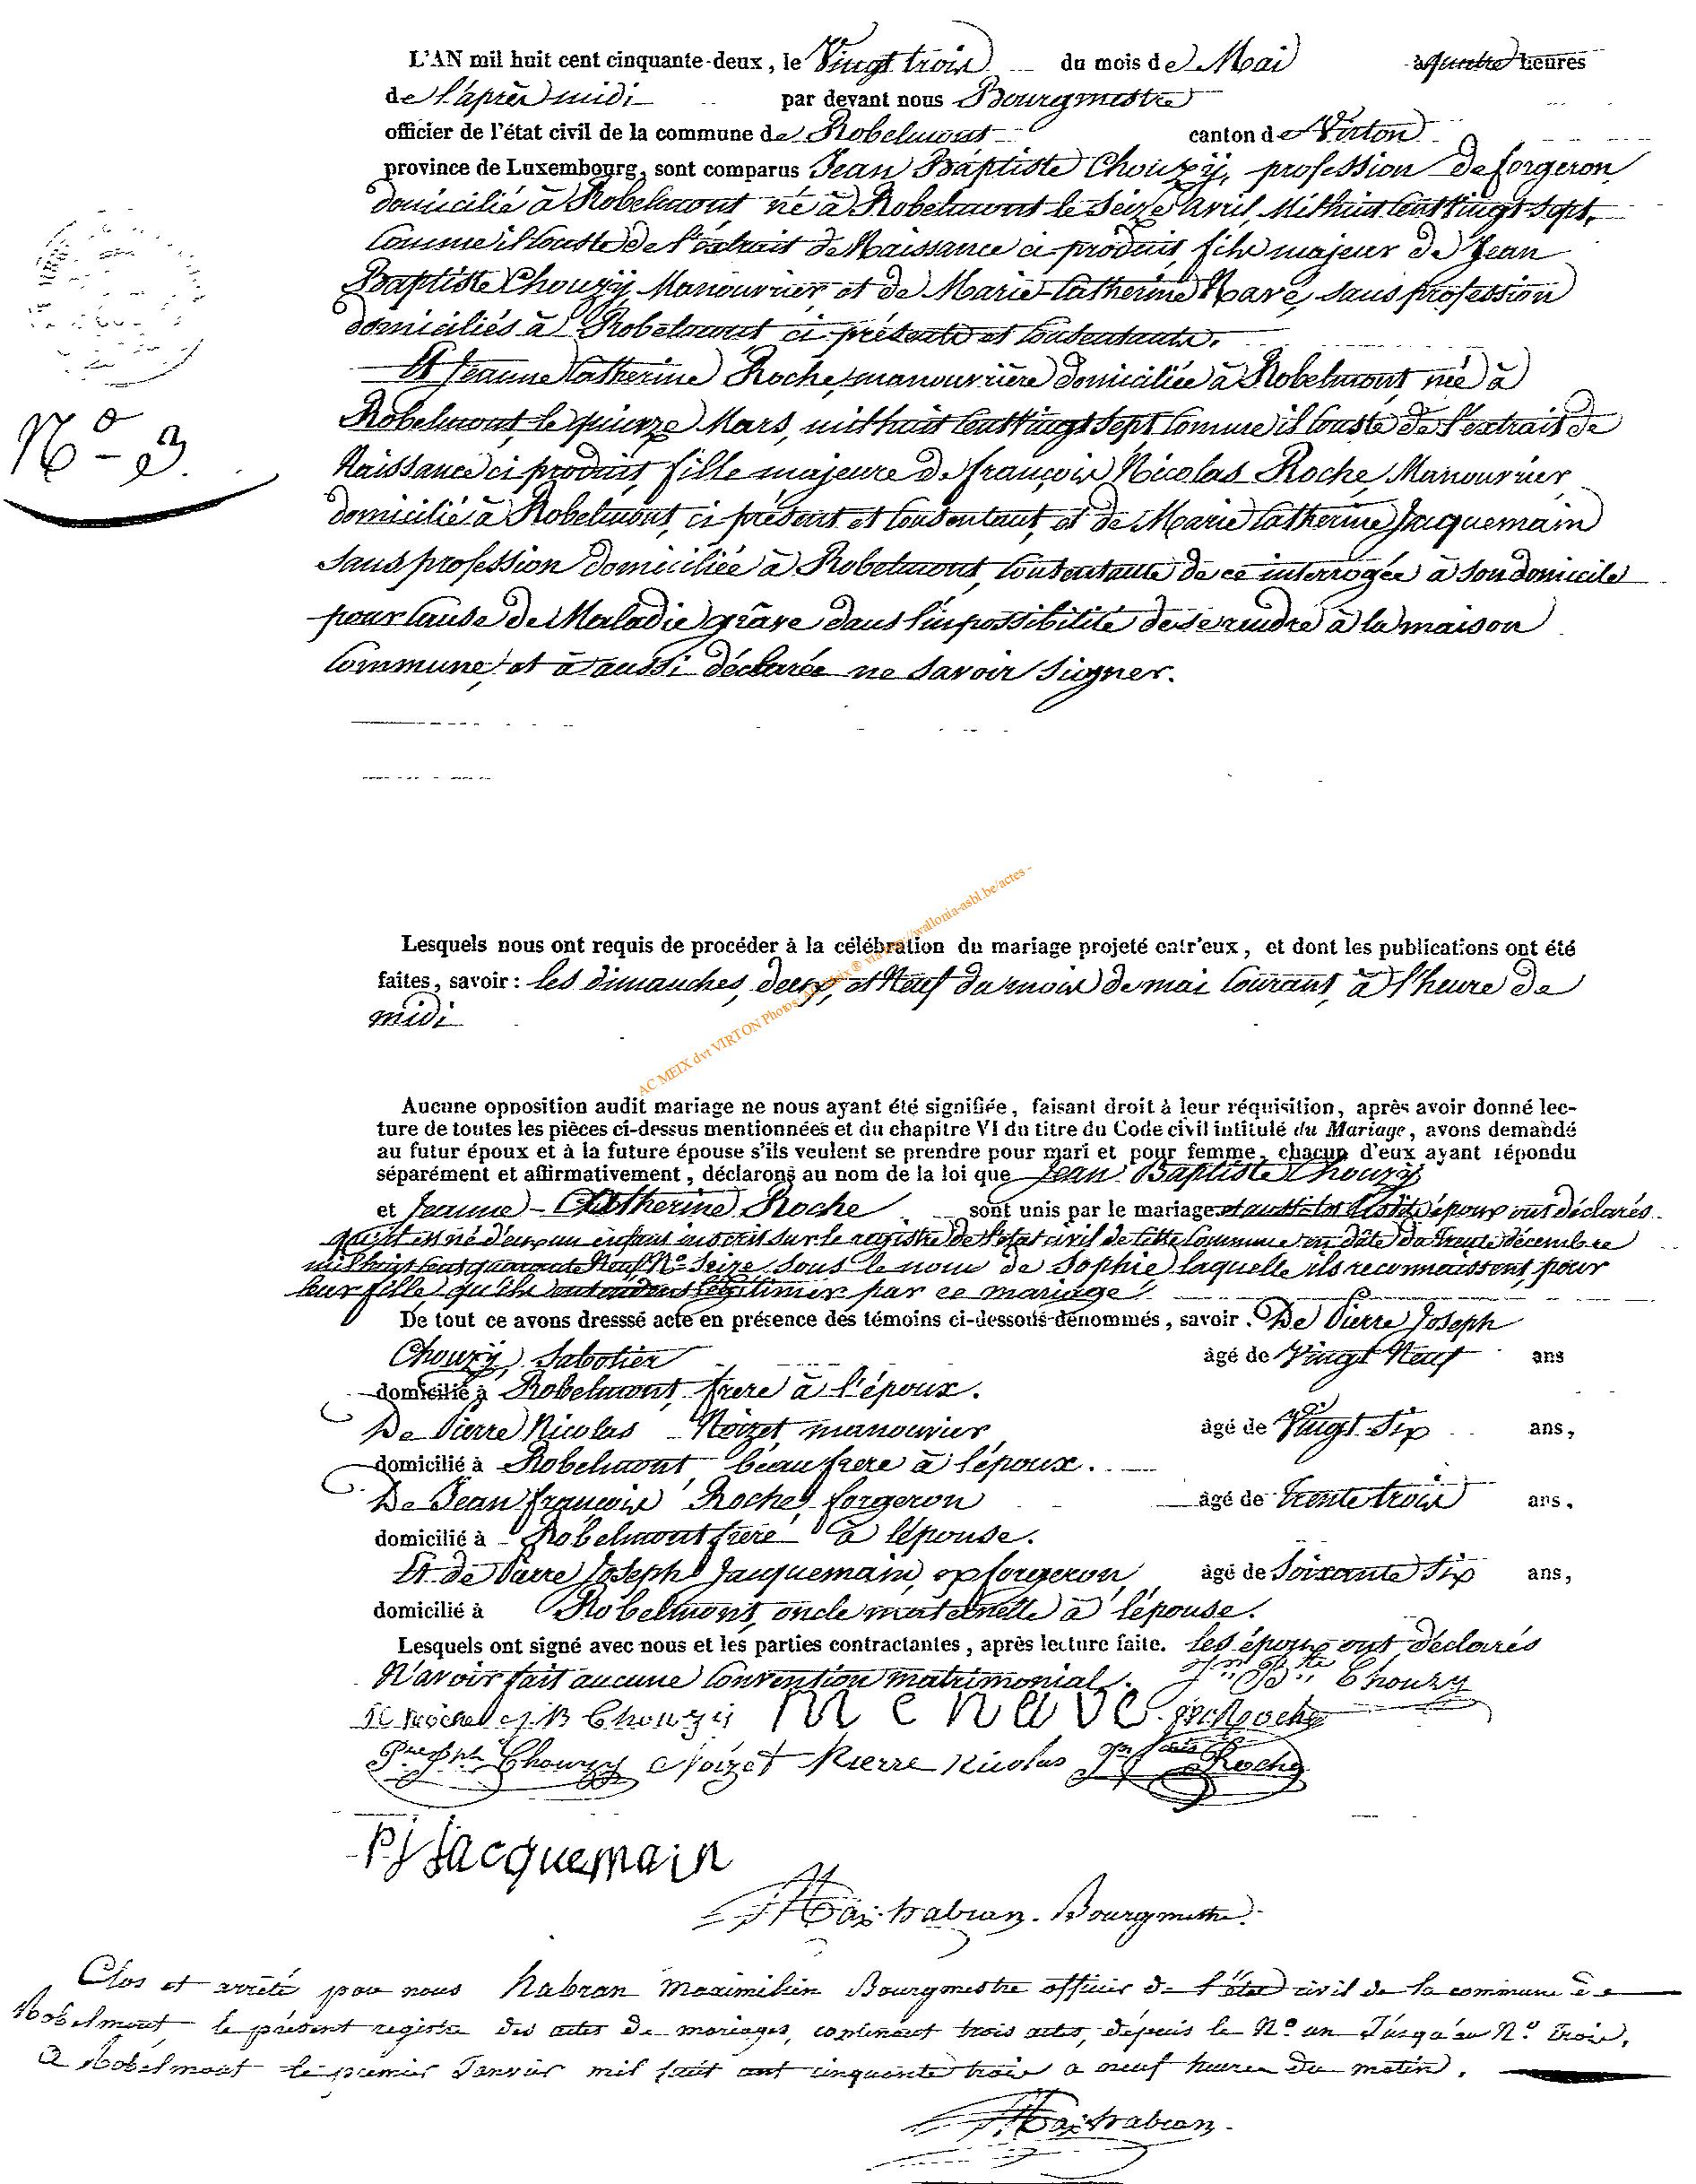 L'AN mil huit cent cinquante-deux, le Vingt trois du mois de Mai à quatre heures
de l'après midi par devant nous Bourgmestre
officier de l'état civil de la commune de Robelmont canton de Virton
province de Luxembourg, sont comparus Jean Baptiste Chouzy, profession de forgeron
domicilié à Robelmont né à Robelmont le Seize Avril Mil huit Cent Vingt Sept,
Comme il Conste de l'extrait de Naissance ci produit, fils majeur de Jean
Baptiste Chouzy, Manouvrier et de Marie-Catherine Navé, sans profession
domiciliés à Robelmont ci présents et Consentants.
Et Jeanne Catherine Roche, manouvrière domiciliée à Robelmont, née à
N° 3
Robelmont, le quinze Mars, mil huit Cent Vingt Sept Comme il Conste de l'extrait de
Naissance ci produit, fille majeure de françois Nicolas Roche, Manouvrier
domicilié à Robelmont, ci présent et Consentant, et de Marie Catherine Jacquemain
sans profession domiciliée à Robelmont, Consentante de ce interrogée à son domicile
pour Cause de Maladie grâve dans l'impossibilité de se rendre à la maison
Commune, et à aussi déclarée ne savoir signer.
Lesquels nous ont requis de procéder à la célébration du mariage projeté entr'eux, et dont les publications ont été
faites, savoir : les dimanches, deux, et Neuf du mois de mai Courant, à l'heure de
midi
AC MEIX dvt VIRTON Photos: wallonia-asbl.be/actes -
Aucune opposition audit mariage ne nous ayant été signifiée, faisant droit à leur réquisition, après avoir donné lec-
ture de toutes les pièces ci-dessus mentionnées et du chapitre VI du titre du Code civil intitulé du Mariage, avons demandé
au futur époux et à la future épouse s'ils veulent se prendre pour mari et pour femme, chacun d'eux ayant répondu
séparément et affirmativement, déclarons au nom de la loi que Jean Baptiste Chouzy
et Jeanne-Catherine Roche sont unis par le mariage et aussitot lesdits époux ont déclarés
qu'il est né d'eux un enfant inscrit sur le registre de l'état civil de Cette Commune en dâte du trente décembre
mil huit Cent quarante Neuf N° Seize, sous le nom de Sophie, laquelle ils reconnaissent, pour
leur fille, qu'ils entendent légitimer par ce mariage
De tout ce avons dresssé acte en présence des témoins ci-dessous-dénommés, savoir. De Pierre Joseph
Chouzy, Sabotier âgé de Vingt Neuf ans
domicilié à Robelmont, frere à l'époux.
De Pierre Nicolas Noizet manouvrier âgé de Vingt Six ans,
domicilié à Robelmont, beau frere à l'époux.
De Jean françois Roche, forgeron âgé de Trente trois ans,
domicilié à Robelmont frere à l'épouse.
Et de Pierre Joseph Jacquemain, ex forgeron, âgé de Soixante Six ans,
domicilié à Robelmont, oncle maternelle à l'épouse.
Lesquels ont signé avec nous et les parties contractantes, après lecture faite. Les époux ont déclarés
N'avoir fait aucune Convention matrimonial. Jn Bte Chouzy
JC Roche JB Chouzy m c nave Roche
Pre Jph Chouzy Noizet Pierre Nicolas Jn fcois Roche
P J Jacquemain
Max. habran. Bourgmestre.
Clos et arrêté par nous habran Maximilien Bourgmestre officier de l'état civil de la commune de
Robelmont, le présent registre des actes de mariages, contenant trois actes, dépuis le N° un Jusqu'au N° trois,
A Robelmont le premier Janvier mil huit cent cinquante trois a neuf heures du matin.
Max habran.